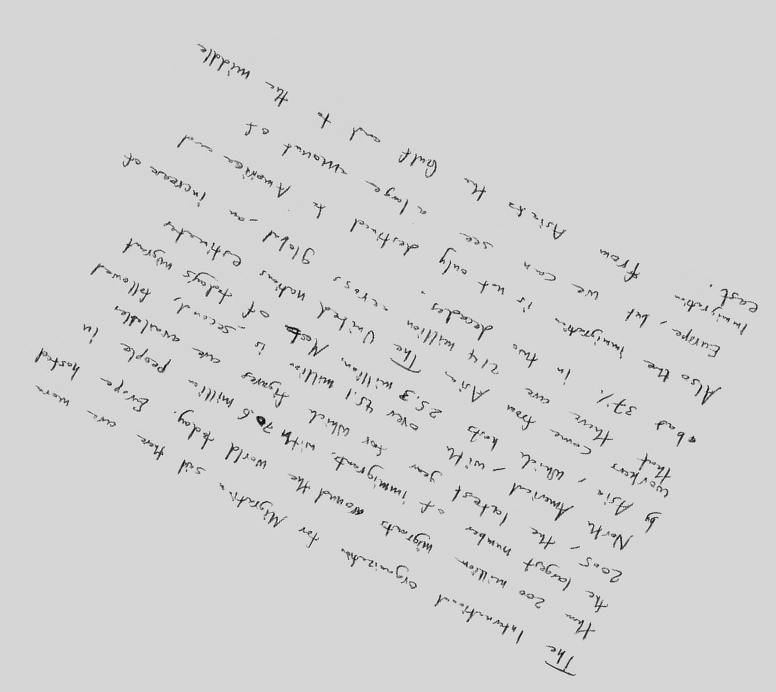 The International organization for Migration said there are more
than 200 million migrants around the world today. Europe hosted
the largest number of immigrants, with 70.6 million people in
2005, the latest year for which figures are available
North America, with over 45.1 million, is second, followed
by Asia, which hosts 25.3 million. Most of today's migrant
workers come from Asia. The United nations estimates
that there are 214 million across global - an increase of
abat 37% in two decades.
Also the immigration is not only destined to America and
Europe, but we can see a large amount of
Immigration from the Gulf and to the middle
east.